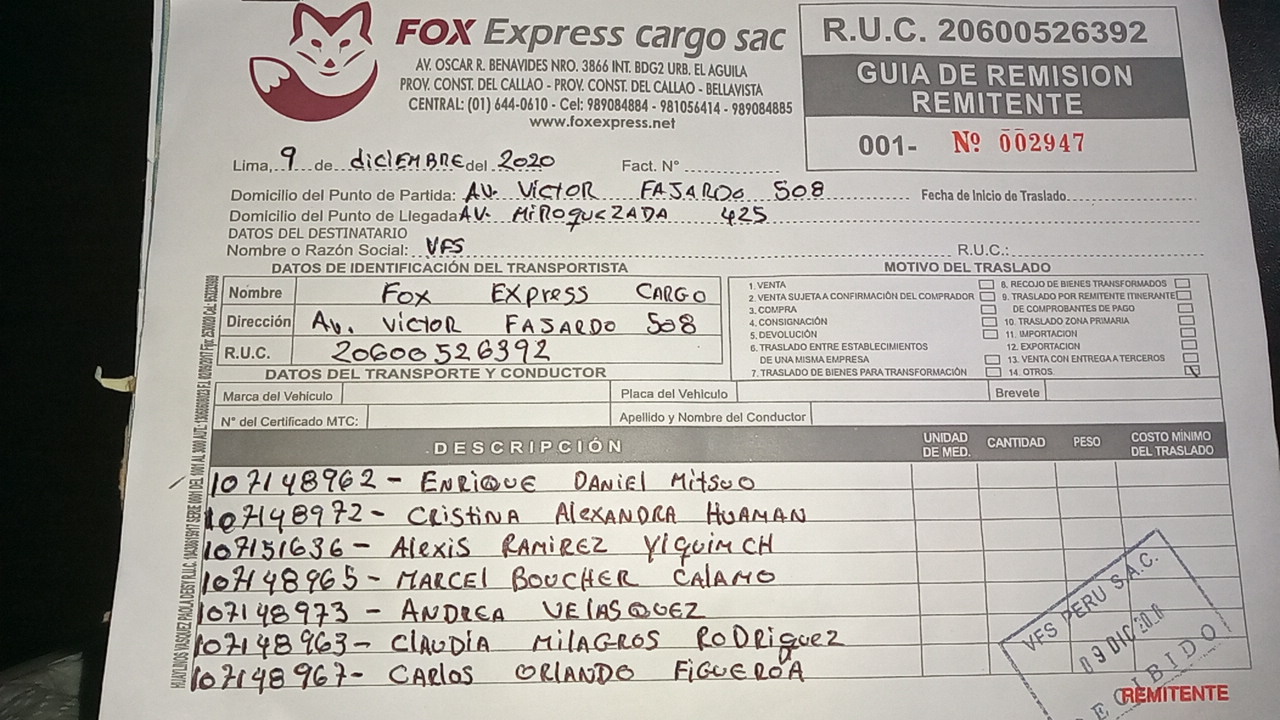 FOX Express cargo sac
AV. OSCAR R. BENAVIDES NRO. 3866 INT. BDG2 URB. EL AGUILA
PROV. CONST. DEL CALLAO - PROV. CONST. DEL CALLAO - BELLAVISTA
CENTRAL: (01) 644-0610 - Cel: 989084884 - 981056414 - 989084885
www.foxexpress.net
R.U.C. 20600526392
GUIA DE REMISION
REMITENTE
001- Nº 002947
Lima, 9 de diciEMBRE del 2020 Fact. N°
Domicilio del Punto de Partida: AV. VICTOR FAJARDO 508 Fecha de Inicio de Traslado
Domicilio del Punto de Llegada AV. MIROQUEZADA 425
DATOS DEL DESTINATARIO
Nombre o Razón Social: VFS R.U.C.:
DATOS DE IDENTIFICACIÓN DEL TRANSPORTISTA
Nombre FOX EXPRESS CARGO
Dirección AV. VICTOR FAJARDO 508
R.U.C. 20600526392
MOTIVO DEL TRASLADO
1. VENTA
2. VENTA SUJETA A CONFIRMACIÓN DEL COMPRADOR
3. COMPRA
4. CONSIGNACIÓN
5. DEVOLUCIÓN
6. TRASLADO ENTRE ESTABLECIMIENTOS
DE UNA MISMA EMPRESA
7. TRASLADO DE BIENES PARA TRANSFORMACIÓN
8. RECOJO DE BIENES TRANSFORMADOS
9. TRASLADO POR REMITENTE ITINERANTE
DE COMPROBANTES DE PAGO
10. TRASLADO ZONA PRIMARIA
11. IMPORTACION
12. EXPORTACION
13. VENTA CON ENTREGA A TERCEROS
14. OTROS
DATOS DEL TRANSPORTE Y CONDUCTOR
Marca del Vehículo Placa del Vehículo Brevete
N° del Certificado MTC: Apellido y Nombre del Conductor
DESCRIPCIÓN UNIDAD DE MED. CANTIDAD PESO COSTO MÍNIMO DEL TRASLADO
107148962 - ENRIQUE DANIEL MITSUO
107148972 - CRISTINA ALEXANDRA HUAMAN
107151636 - ALEXIS RAMIREZ YIQUIMCH
107148965 - MARCEL BOUCHER CALAMO
107148973 - ANDREA VELASQUEZ
107148963 - CLAUDIA MILAGROS RODRIGUEZ
107148967 - CARLOS ORLANDO FIGUEROA
VFS PERU S.A.C.
09 DIC 2020
RECIBIDO
REMITENTE